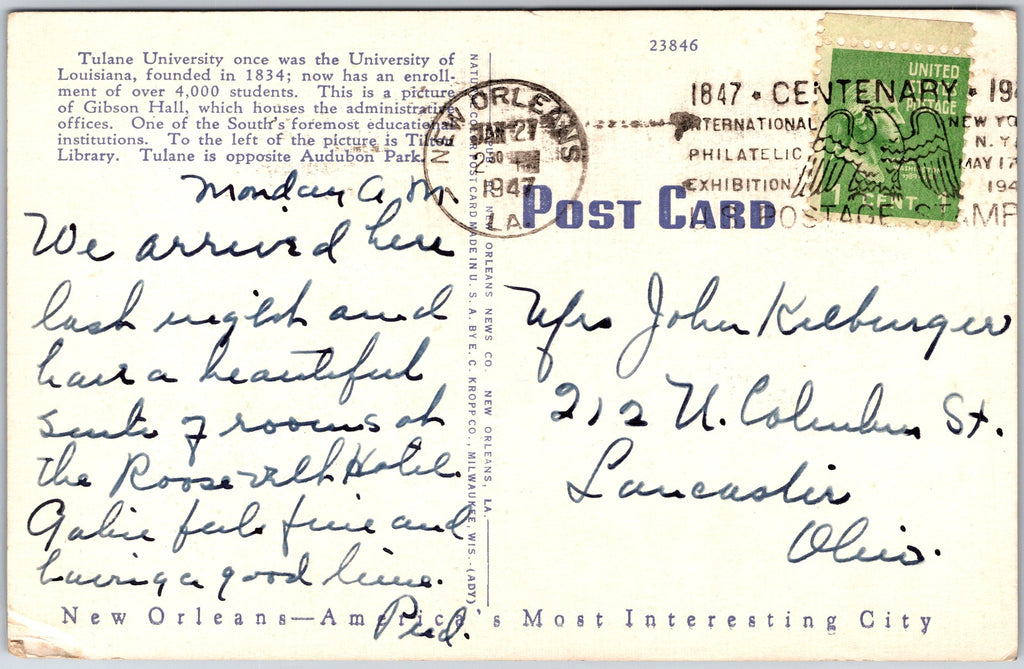 Tulane University once was the University of
Louisiana, founded in 1834; now has an enroll-
ment of over 4,000 students. This is a picture
of Gibson Hall, which houses the administrative
offices. One of the South's foremost educational
institutions. To the left of the picture is Tilton
Library. Tulane is opposite Audubon Park.
Monday A.M.
We arrived here
last night and
have a beautiful
suite of rooms at
the Roosevelt Hotel.
feels fine and
having a good time.
NEW ORLEANS NEWS CO. NEW ORLEANS, LA.
POST CARD MADE IN U. S. A. BY E. C. KROPP CO., MILWAUKEE, WIS. (ADY)
23846
NEW ORLEANS
JAN 27
2 30
1947
LA.
1847 • CENTENARY • 19
INTERNATIONAL
PHILATELIC
EXHIBITION
NEW YO
N.Y.
MAY 17
194
U.S. POSTAGE STAMP
UNITED
STATES
POSTAGE
1 CENT 1
POST CARD
Mrs John Kilburger
212 N. Columbus St.
Lancaster
Ohio.
New Orleans—America's Most Interesting City